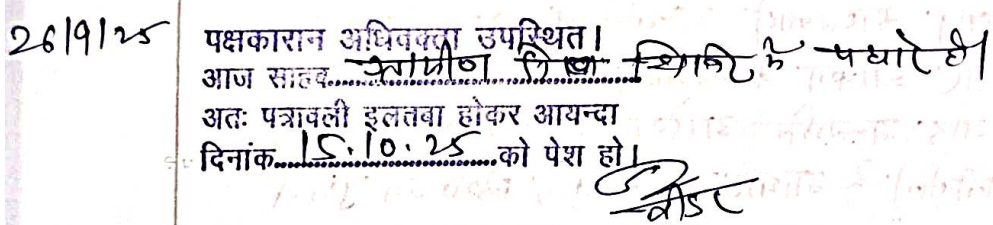 26/9/25
पक्षकारान अधिवक्ता उपस्थित।
आज साहब ग्रामीण शिविर में पधारे है।
अतः पत्रावली इलतवा होकर आयन्दा
दिनांक 15.10.25 को पेश हो।
रीडर